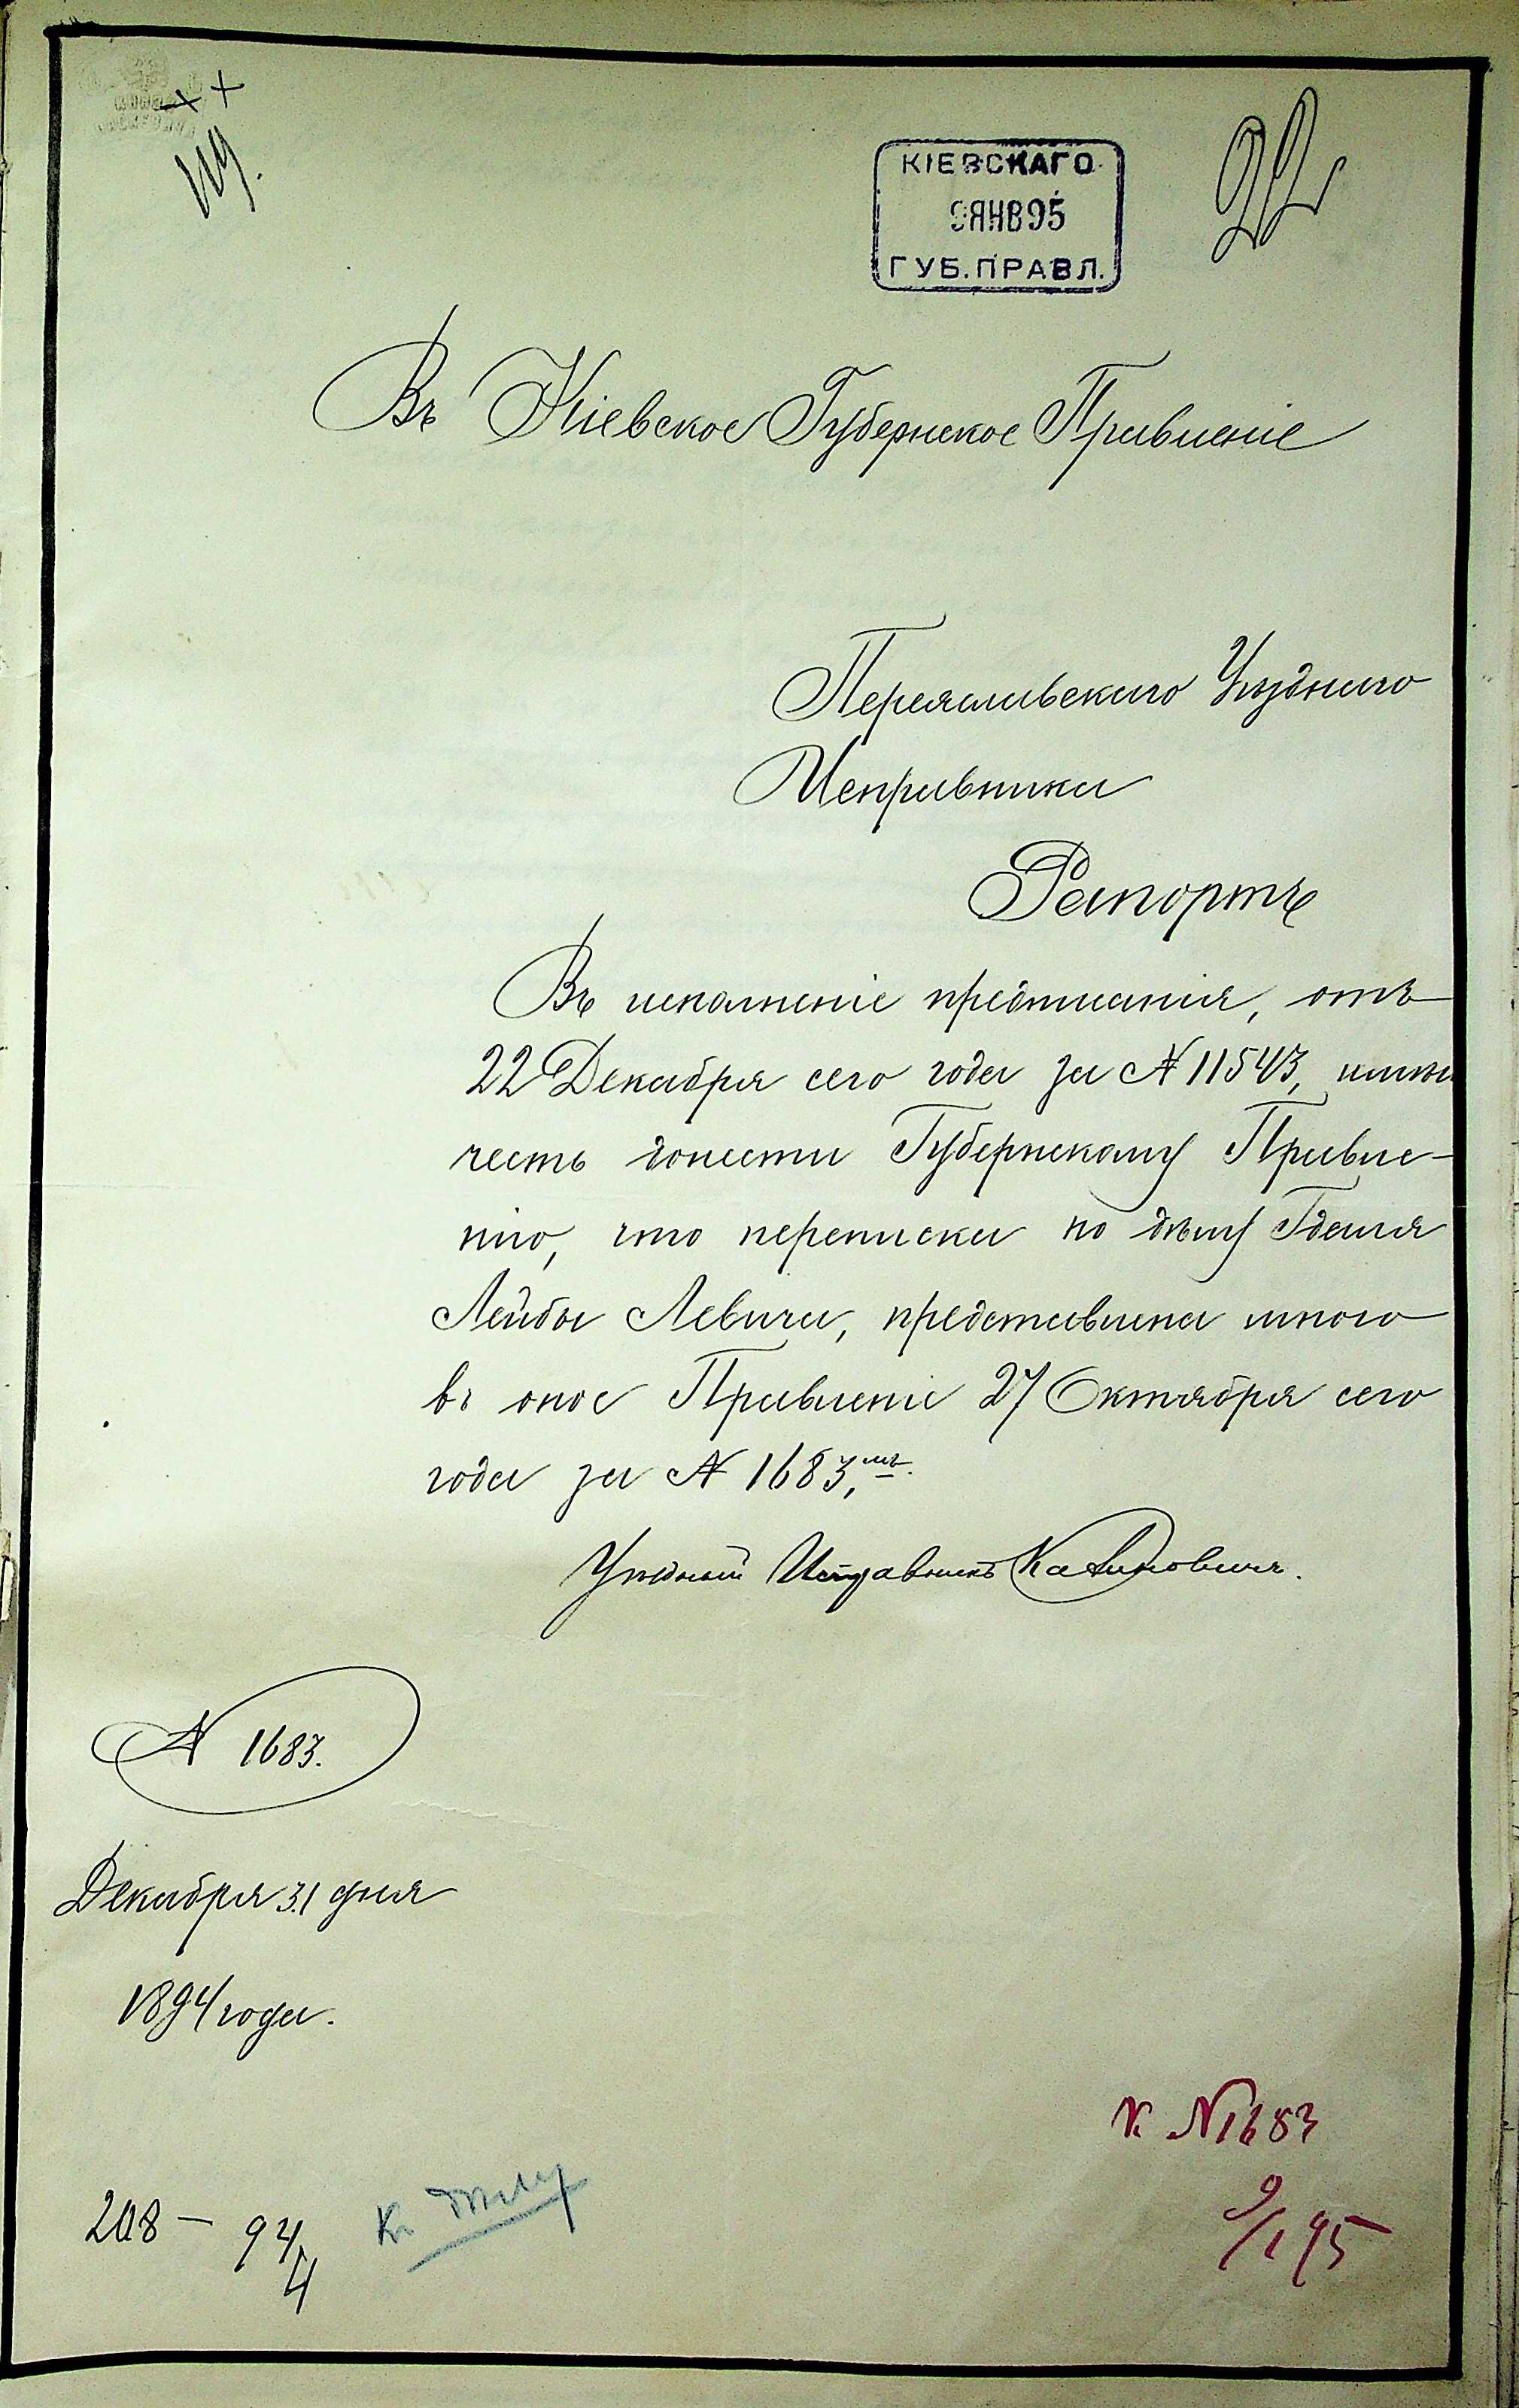 КІЕВСКАГО
9 ЯНВ 95
ГУБ. ПРАВЛ.
22
Въ Кіевское Губернское Правленіе
Переяславскаго Уѣзднаго
Исправника
Рапортъ
Въ исполненіе предписанія, отъ
22 Декабря сего года за № 11543, имѣю
честь донести Губернскому Правле-
нію, что переписка по дѣлу Гдаля
Лейбы Левича, представлена мною
въ оное Правленіе 27 Октября сего
года за № 1683,мъ.
Уѣздный Исправникъ
№ 1683.
Декабря 31 дня
1894 года.
К. № 1683
9/I 95
208 – 94/4
Къ дѣлу